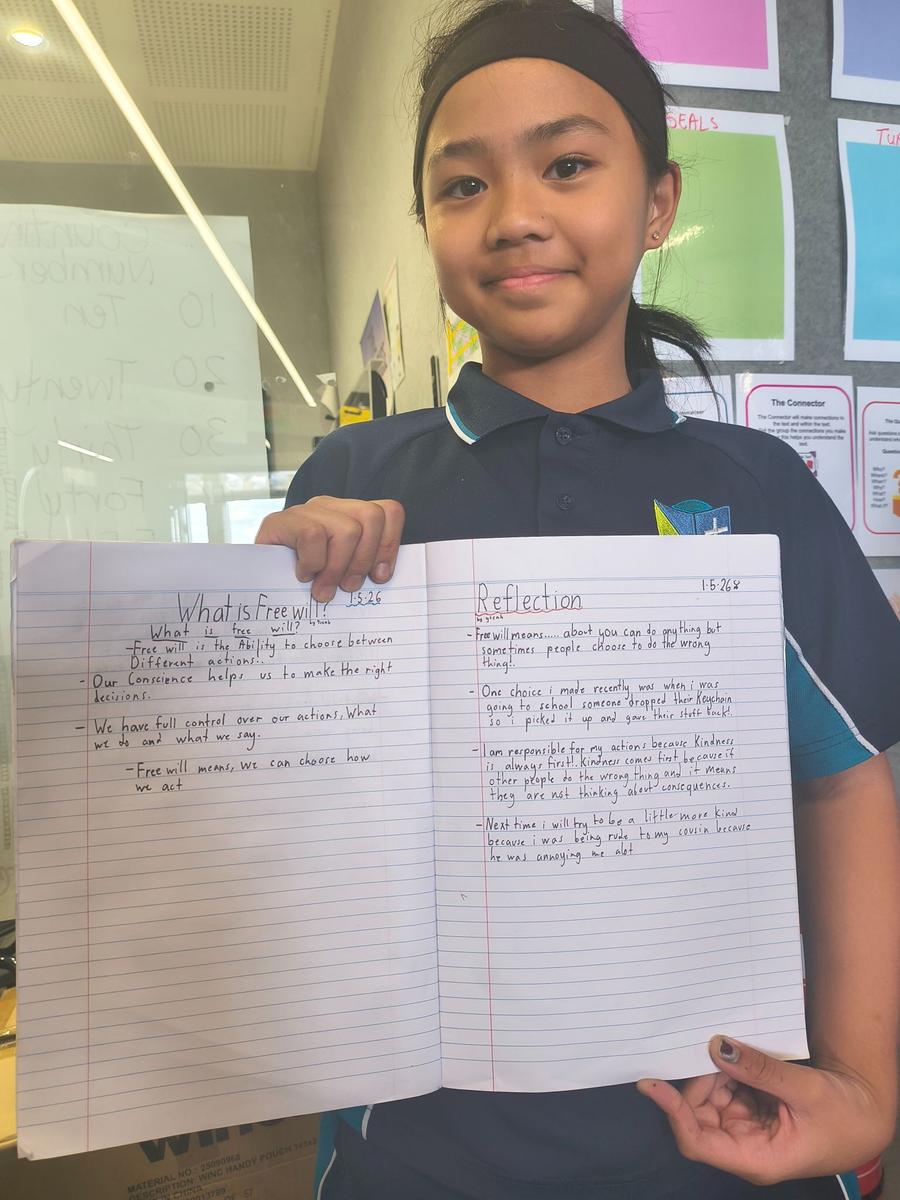 SEALs
COUNTIN
Number
10 Ten
20 Twenty
30
Forty
The Connector
The Connector will make connections to
the text and within the text.
this helps you understand the
text.
Ask questions
understand
Who?
Where?
When?
Why?
What?
How?
What if?
1.5.26
What is Free will?
What is free will?
-Free will is the Ability to choose between
Different actions..
- Our Conscience helps us to make the right
decisions.
- We have full control over our actions, What
we do and what we say.
-Free will means, We can choose how
we act
1.5.26
Reflection
-Free will means..... about you can do anything but
sometimes people choose to do the wrong
thing!.
- One choice i made recently was when i was
going to school someone dropped their Keychain
so i picked it up and gave their stuff back!.
-I am responsible for my actions because Kindness
is always first!. Kindness comes first because if
other people do the wrong thing and it means
they are not thinking about consequences.
-Next time i will try to be a little more kind
because i was being rude to my cousin because
he was annoying me alot
MATERIAL NO: 25090968
DESCRIPTION: WINC HANDY POUCH